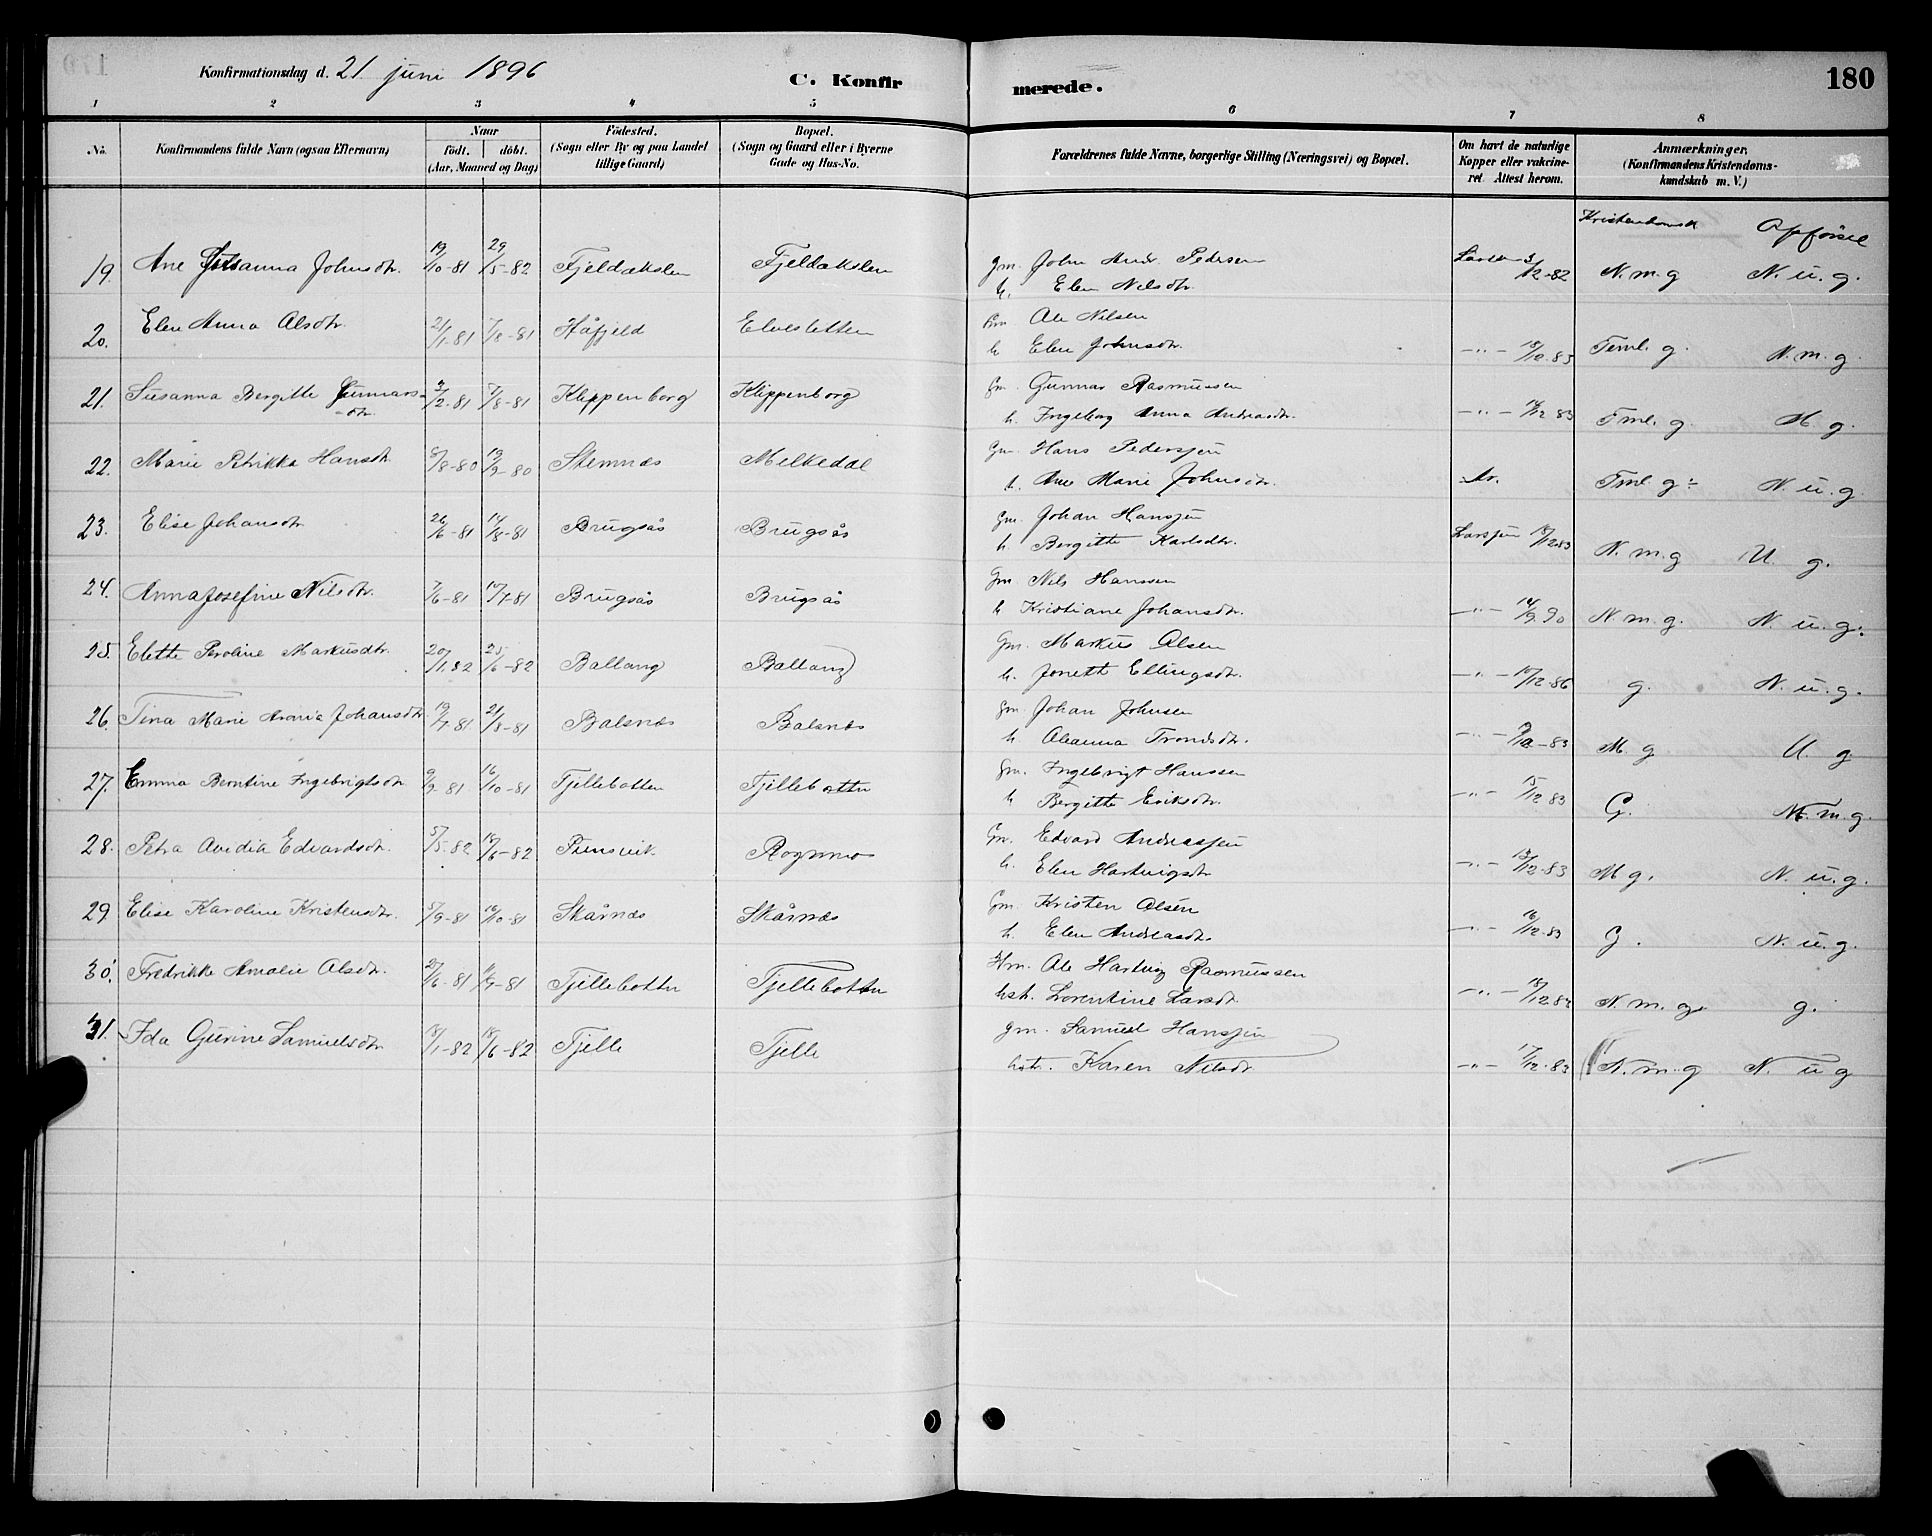 Konfirmationsdag d. 21 juni 1896
C. Konfirmerede.
180
1 2 3 4 5 6 7 8
No.
Konfirmandens fulde Navn (ogsaa Efternavn)
Naar
födt. döbt.
(Aar, Maaned og Dag)
Födested.
(Sogn eller By og paa Landet
tillige Gaard)
Bopæl.
(Sogn og Gaard eller i Byerne
Gade og Hus-No.
Forældrenes fulde Navne, borgerlige Stilling (Næringsvei) og Bopæl.
Om havt de naturlige
Kopper eller vakcine-
ret. Attest herom.
Anmærkninger.
(Konfirmandens Kristendoms-
kundskab m. V.)
Kristendomsk Opförsel
19. Ane Johanna Johnsdtr. 19/10-81 29/5-82 Fjeldakslen Fjeldakslen gm. John Andr. Pedersen 3/12-82 N. m. g N. u. g.
h. Elen Nilsdtr.
20. Elen Anna Olsdtr. 21/1-81 7/8-81 Håfjeld Elvesletten Gm Ole Nilsen
h Elen Johnsdtr. —"— 18/10-83 Teml. g. N. m. g.
21. Susanna Bergitte Gunnars- 3/2-81 7/8-81 Klippenborg Klippenborg Gm. Gunnar Rasmussen
dtr. h. Ingeborg Anna Andreasdtr. —"— Tml. g. M g.
22. Marie Petrikka Hansdtr. 8/8-80 19/9-80 Stemnæs Melkedal Gm. Hans Pedersjen
h. Ane Marie Johnsdtr. Tml. g: N. u. g.
23. Elise Johansdtr 26/6-81 14/8-81 Brugsås Brugsås Gm. Johan Hansjen
h. Bergitte Karlsdtr. Larsjen 18/12 83 N. m. g U. g.
24. Anna Josefine Nilsdtr. 7/6-81 10/7-81 Brugsås Brugsås Gm Nils Hanssen
h Kristiane Johansdtr. —"— 14/9 90 N. m. g. N. u. g:
25. Elette Peroline Markusdtr. 20/1 82 25/6-82 Ballang Ballang Gm. Markus Olsen
h. Jonette Ellingsdtr. —"— g. N. u. g.
26. Tina Marie Aronia Johansdtr. 19/7 81 21/8-81 Balsnæs Balsnæs gm. Johan Johnsen
h Oleanna Trondsdtr. —"— M. g U. g
27. Emma Berntine Ingebrigtsdtr 9/9 81 16/10-81 Tjillebotten Tjillebotten Gm. Ingebrigt Hanssen
h Bergitte Eriksdtr. —"— 15/12 83 G. N. m. g.
28. Petra Avidia Edvardsdtr. 5/5-82 18/6-82 Rognnes Gm. Edvard Andreassjen
h. Elen Hartvigsdtr —"— 13/12-83 M g. N. u. g.
29 Elise Karoline Kristensdtr. 5/9-81 16/10-81 Skårnæs Skårnæs Gm. Kristen Olsen
h. Elen Andreasdtr. —"— 16/12-83 G. N. u. g.
30. Fredrikke Amalie Olsdtr. 27/6-81 Tjillebotten Tjillebotten Hm. Ole Hartvig Rasmussen
hst. Lorentine Larsdt. —"— 18/12 83 N. m. g. g.
31. Ida Gurine Samuelsdtr 18/1-82 18/6-82 Tjelle Tjelle gm. Samuel Hansjen
hstr. Karen Nilsdtr —"— 17/12-83 N. m. g N. u g